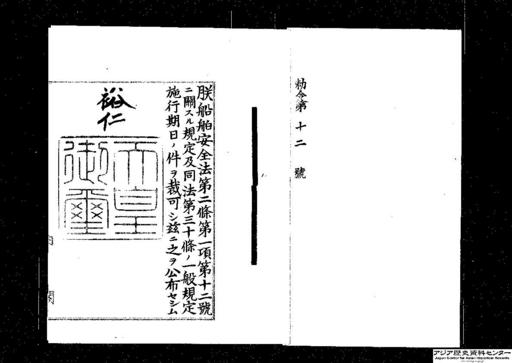 勅令第十二號
朕船舶安全法第二條第一項第十二號
ニ關スル規定及同法第三十條ノ一般規定
施行期日ノ件ヲ裁可シ玆ニ之ヲ公布セシム
裕仁
天皇
御璽
内閣
アジア歴史資料センター
Japan Center for Asian Historical Records